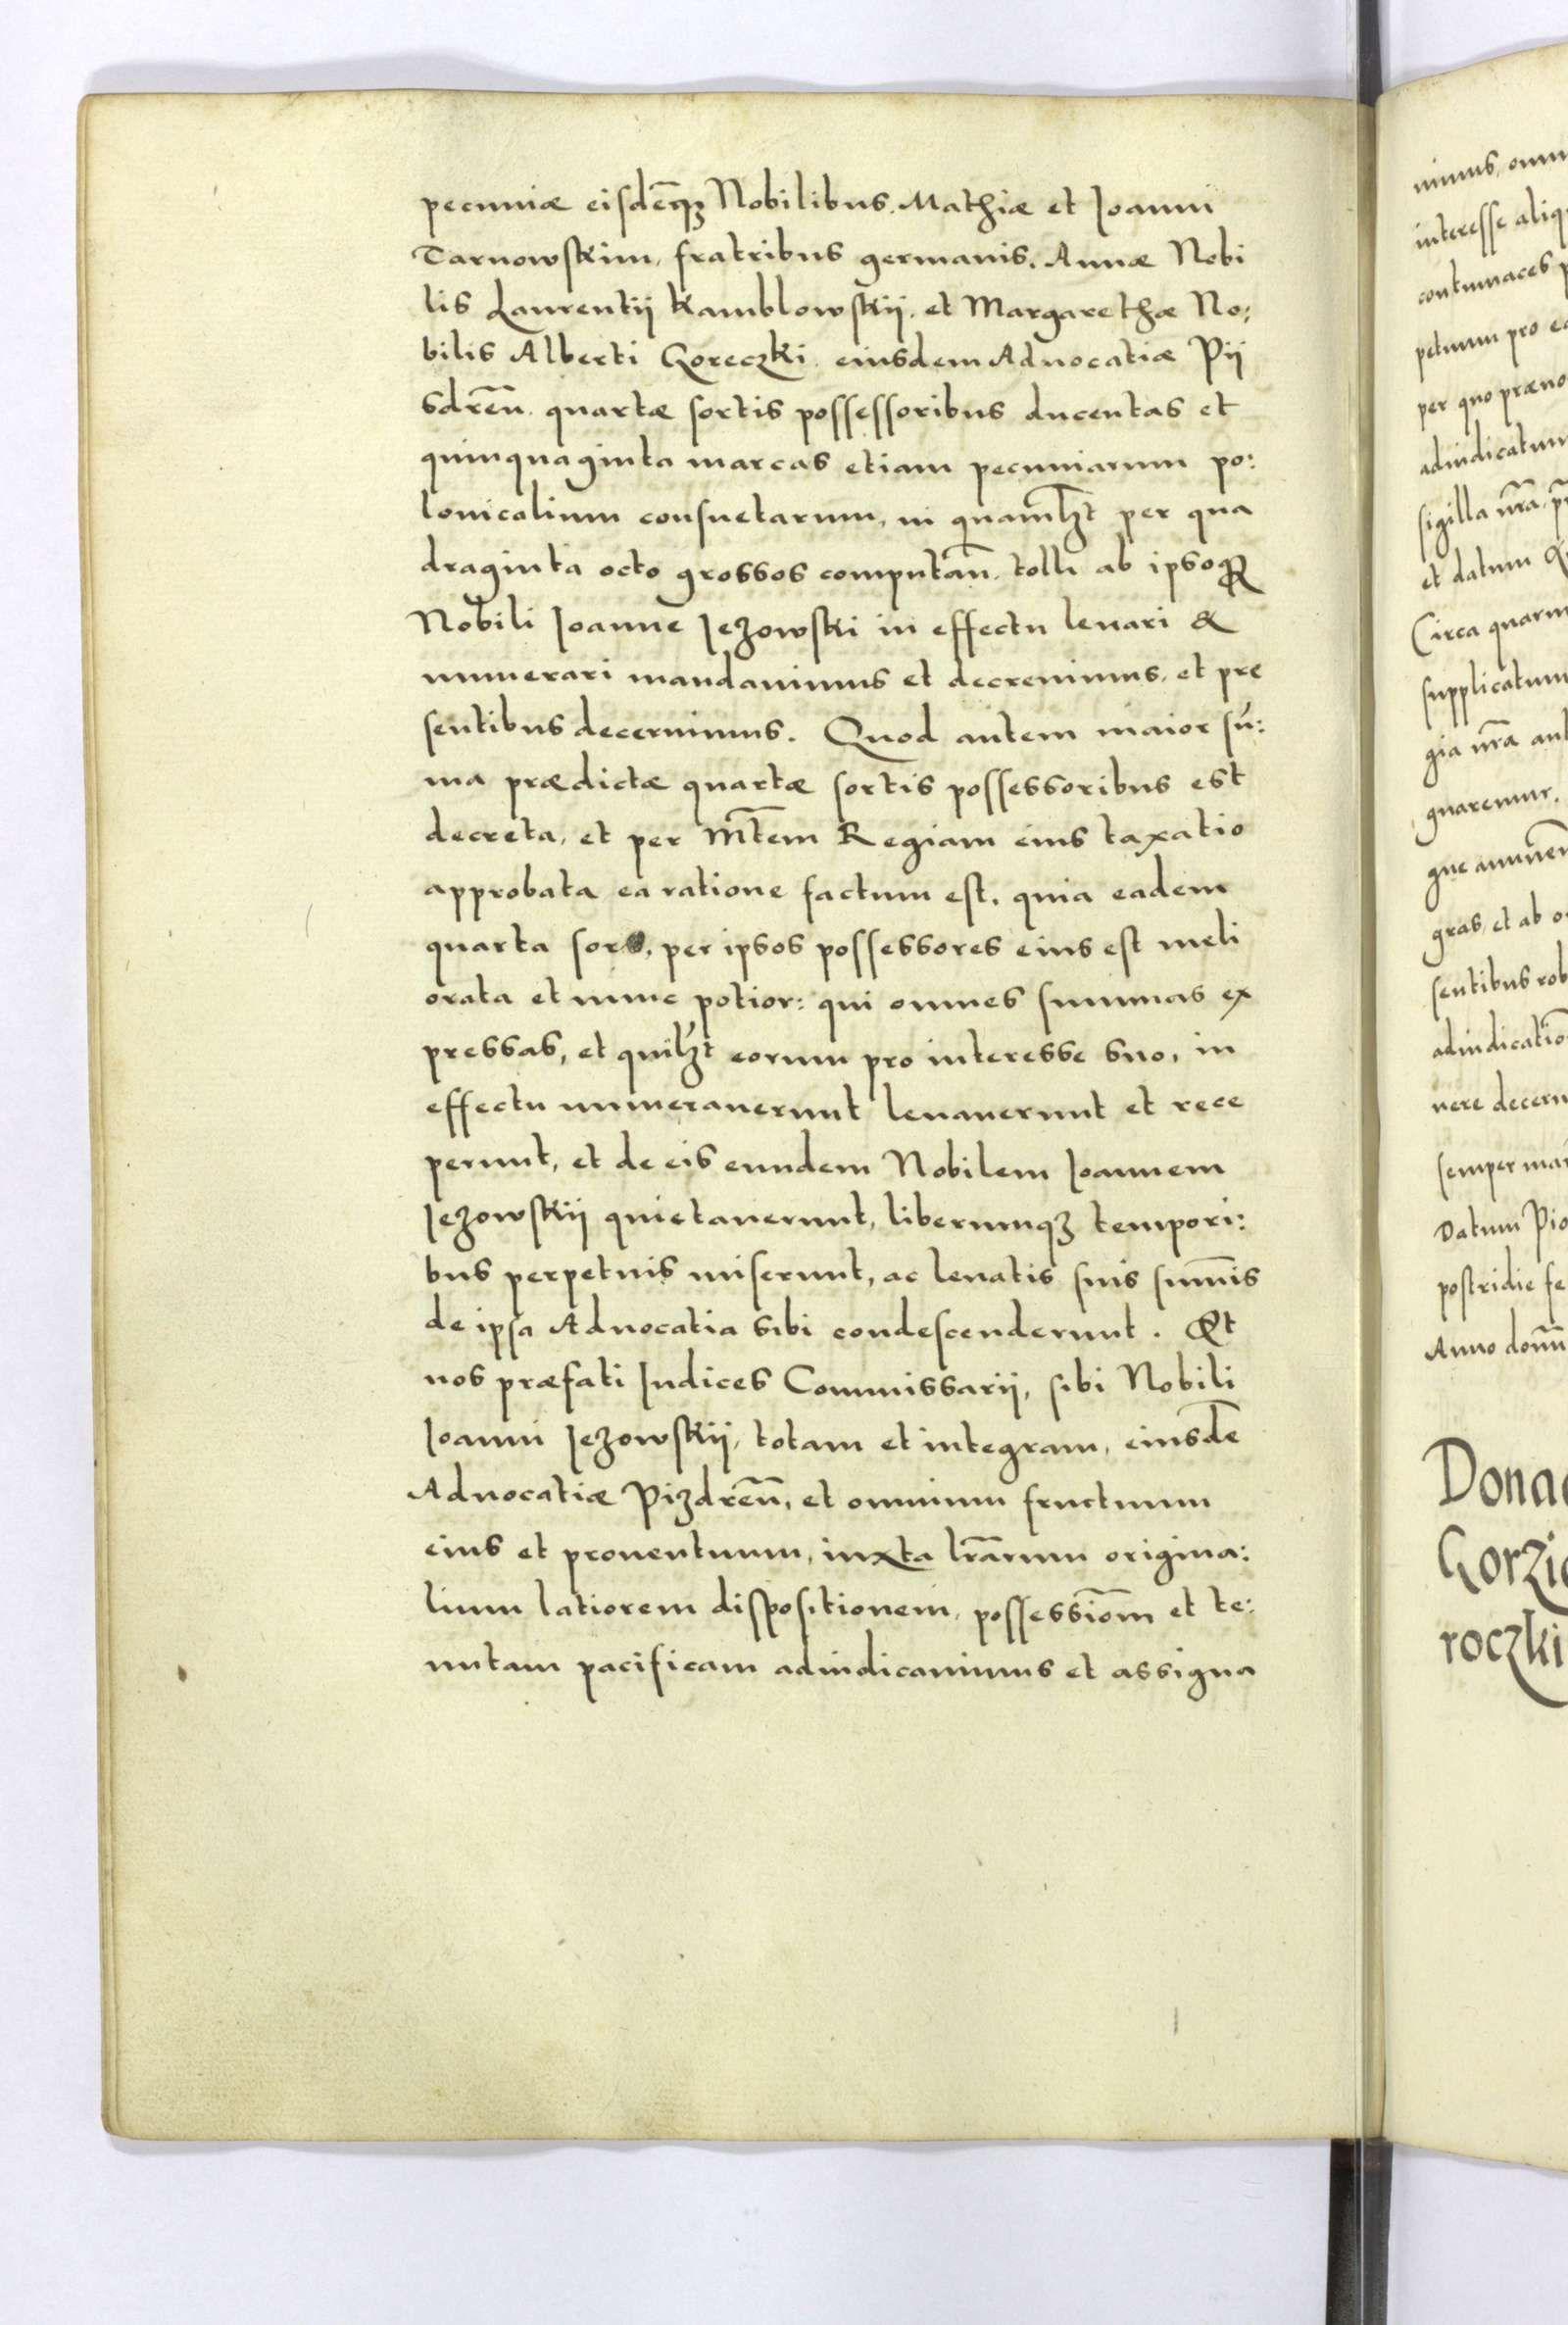 pecuniæ eisdẽqꝫ Nobilibus. Mathiæ et Joanni
Tarnowskim, fratribus germanis. Annæ Nobi
lis Laurentij Kamblowskij. et Margarethæ No:
bilis Alberti Goreczki. eiusdem Aduocatiæ Pij
sdreñ. quartæ sortis possessoribus ducentas et
quinquaginta marcas etiam pecuniarum po:
lonicalium consuetarum, in quamlꝫt per qua
draginta octo grossos computañ. tolli ab ipsoqꝫ
Nobili Joanne Jezowski in effectu leuari &
numerari mandauimus et decreuimus, et pre
sentibus decernimus. Quod autem maior sũ:
ma prædictæ quartæ sortis possessoribus est
decreta, et per Mt̃em Regiam eius taxatio
approbata ea ratione factum est, quia eadem
quarta sors, per ipsos possessores eius est meli
orata et nunc potior: qui omnes summas ex
pressas, et quilꝫt eorum pro interesse suo, in
effectu numerauerunt leuauerunt et rece
perunt, et de eis eundem Nobilem Joannem
Jezowskij quietauerunt, liberumqꝫ tempori:
bus perpetuis miserunt, ac leuatis suis sum̃is
de ipsa Aduocatia sibi condescenderunt. Et
nos præfati Judices Commissarij, sibi Nobili
Joanni Jezowskij, totam et integram, eiusdẽ
Aduocatiæ Pizdreñ, et omnium fructuum
eius et prouentuum, iuxta lr̃arum origina:
lium latiorem dispositionem, possessiom̃ et te:
nutam pacificam adiudicauimus et assigna
nimus, omn
interesse aliq
contumaces p
petuum pro ea
per quo præno
adiudicatum
sigilla nr̃a. p
et datum
Circa quarum
supplicatum
gia nr̃a aut
gnaremur.
gne annuen
gras, et ab o
sentibus rob
adiudicatio
uere decern
semper man
Datum Pio
postridie fe
Anno domi
Dona
Gorzi
roczki